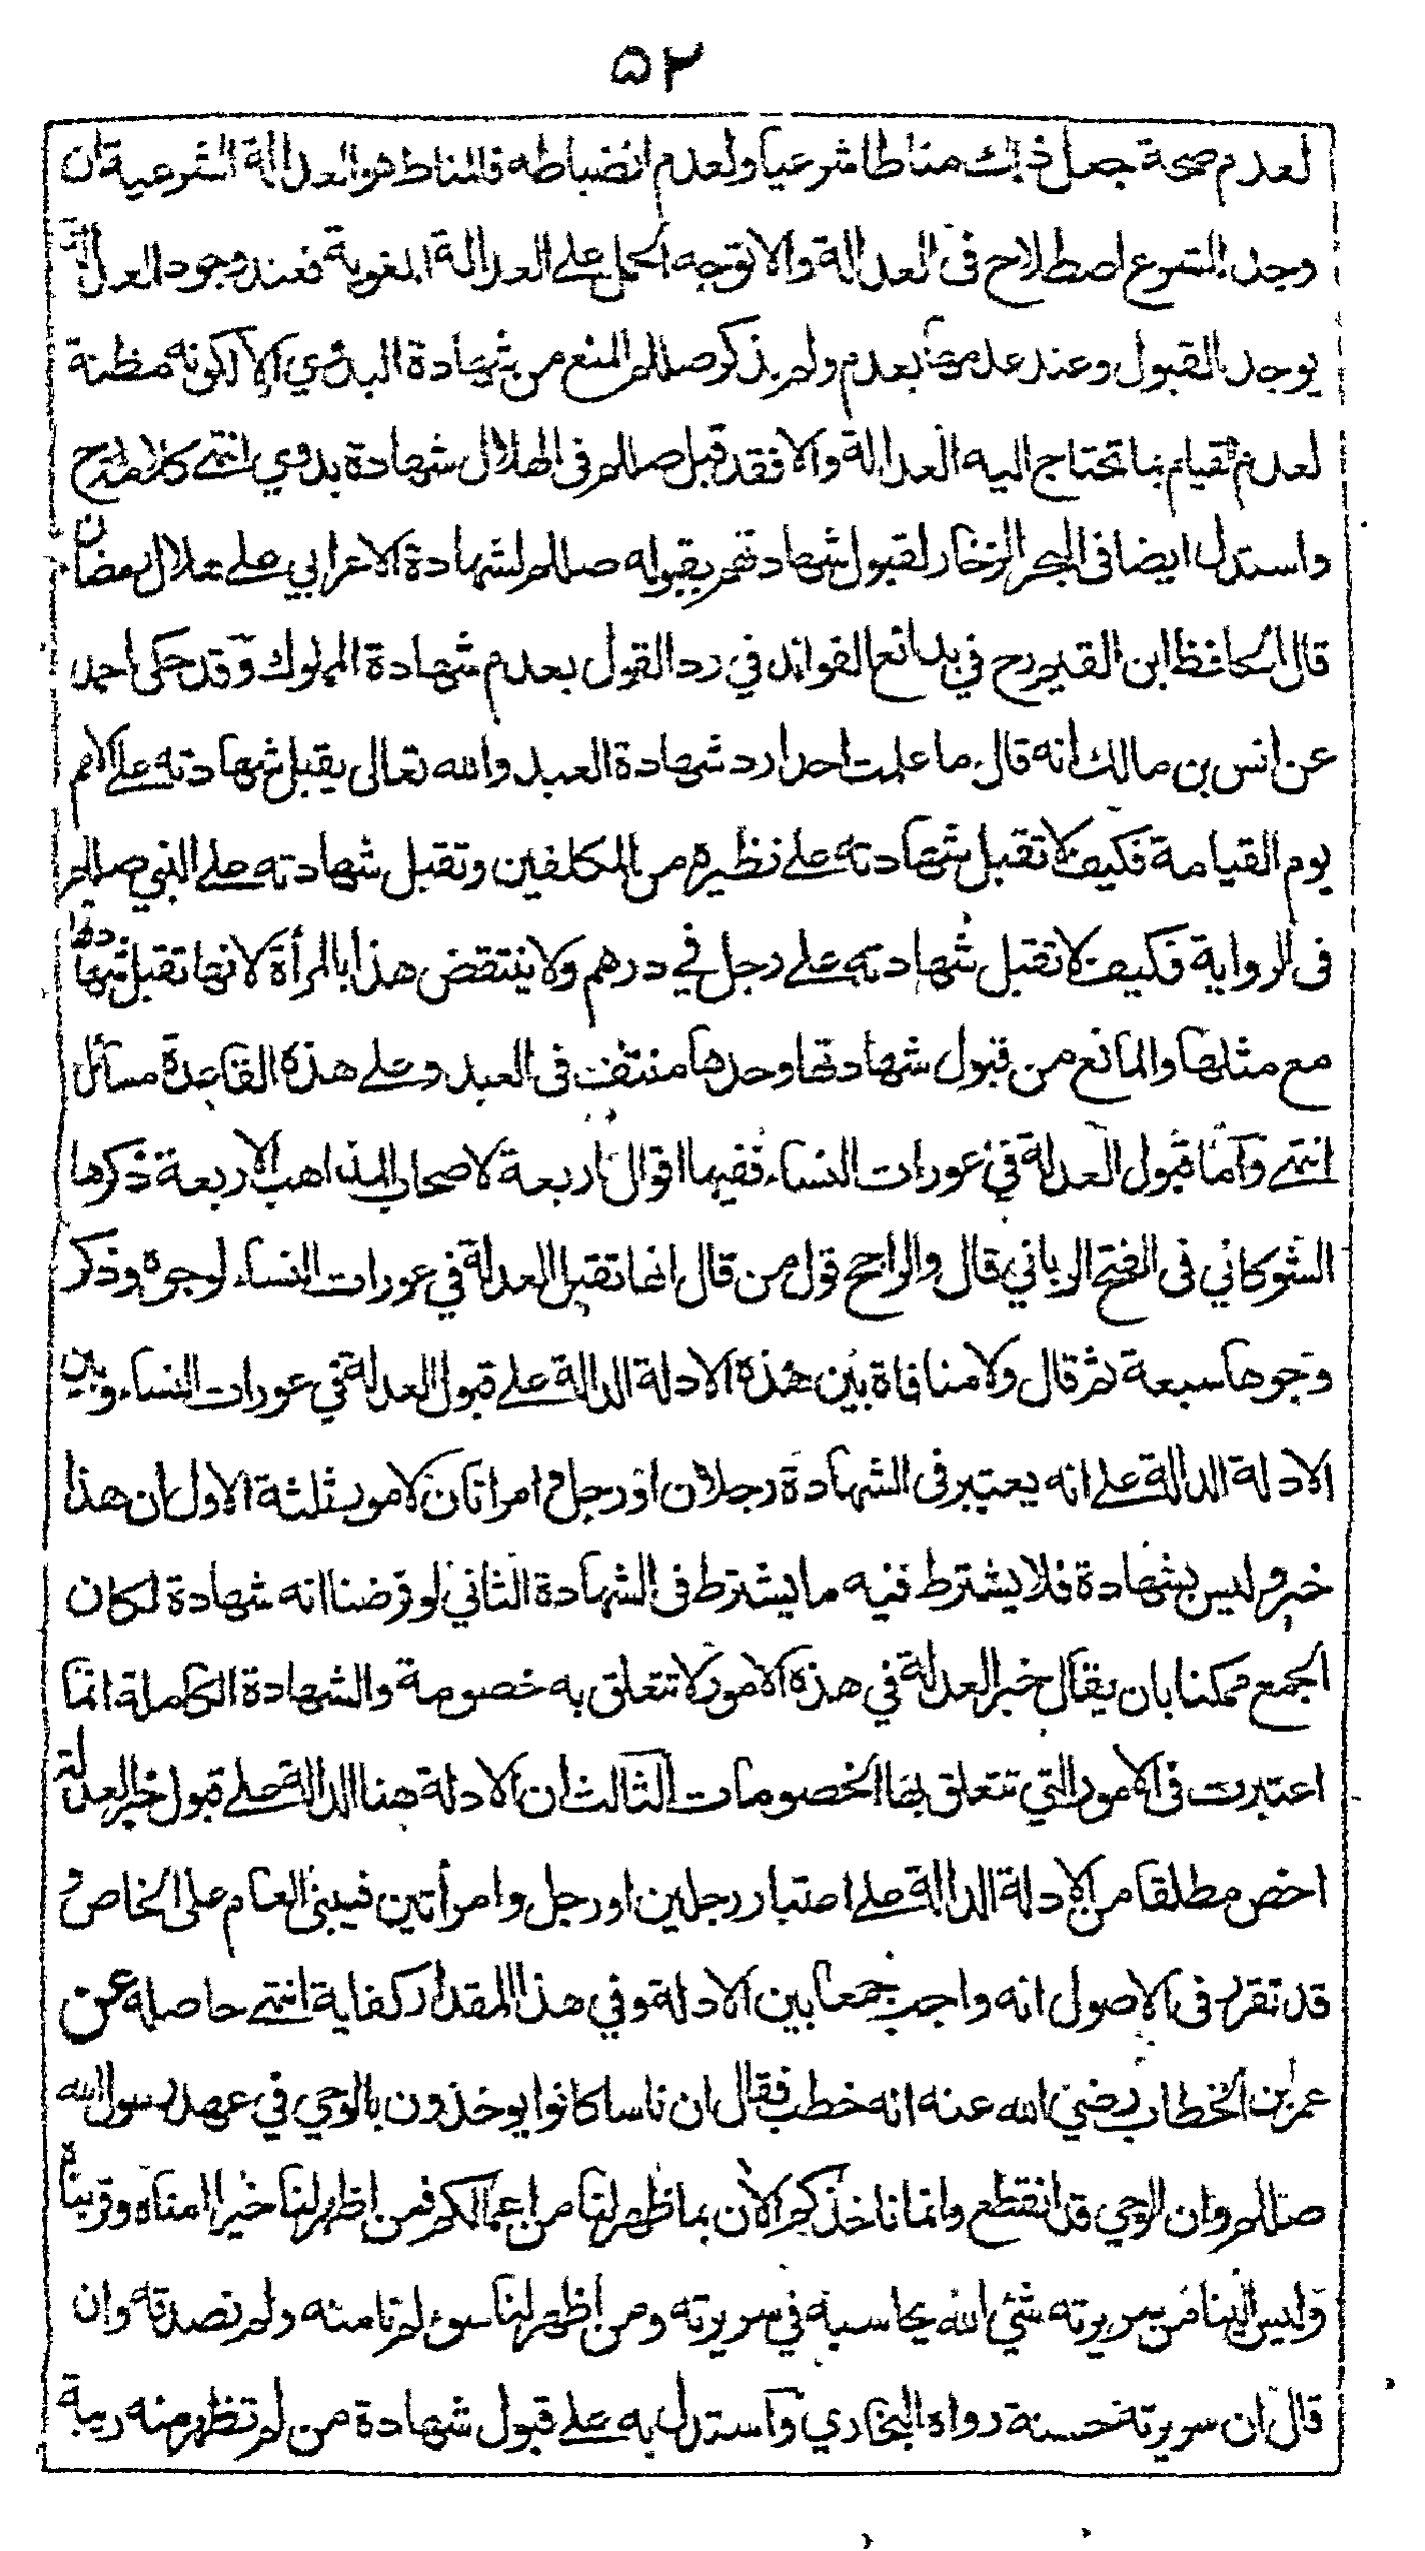 ٥٢
لعدم صحة جعل ذلك مناطا شرعيا ولعدم انضباطه فالمناط هو العدالة الشرعية ان
وجد للشرع اصطلاح فى العدالة والا توجه الحمل على العدالة اللغوية فعند وجود العدالة
يوجد القبول وعند عدمها يعدم ولم يذكر صللم المنع من شهادة البدوي الا لكونه مظنة
لعدم القيام بما تحتاج اليه العدالة والا فقد قبل صللم فى الهلال شهادة بدوي انتهى كلامه رح
واستدل ايضا فى البحر الزخار لقبول شهادتهم بقبوله صللم لشهادة الاعرابي على هلال رمضان
قال الحافظ ابن القيم رح في بدائع الفوائد في رد القول بعدم شهادة المملوك وقد حكى احمد
عن انس بن مالك انه قال ما علمت احدا رد شهادة العبد والله تعالى يقبل شهادته على الامم
يوم القيامة فكيف لا تقبل شهادته على نظيره من المكلفين وتقبل شهادته على النبي صللم
فى الرواية فكيف لا تقبل شهادته على رجل في درهم ولا ينتقض هذا بالمرأة لانها تقبل شهادتها
مع مثلها والمانع من قبول شهادتها وحدها منتف فى العبد وعلى هذه القاعدة مسائل
انتهى واما قبول العدلة في عورات النساء ففيها اقوال اربعة لاصحاب المذاهب الاربعة ذكرها
الشوكاني فى الفتح الرباني قال والراجح قول من قال انها تقبل العدلة في عورات النساء لوجوه وذكر
وجوها سبعة ثم قال ولا منافاة بين هذه الادلة الدالة على قبول العدلة في عورات النساء وبين
الادلة الدالة على انه يعتبر فى الشهادة رجلان او رجل وامراتان لامور ثلثة الاول ان هذا
خبر وليس بشهادة فلا يشترط فيه ما يشترط فى الشهادة الثاني لو فرضنا انه شهادة لكان
الجمع ممكنا بان يقال خبر العدلة في هذه الامور لا تتعلق به خصومة والشهادة الكاملة انما
اعتبرت فى الامور التي تتعلق بها الخصومات الثالث ان الادلة هنا الدالة على قبول خبر العدلة
اخص مطلقا من الادلة الدالة على اعتبار رجلين او رجل وامرأتين فيبنى العام على الخاص و
قد تقرر فى الاصول انه واجب جمعا بين الادلة وفي هذا المقدار كفاية انتهى حاصله عن
عمر بن الخطاب رضي الله عنه انه خطب فقال ان ناسا كانوا يوخذون بالوحي في عهد رسول الله
صللم وان الوحي قد انقطع وانما ناخذكم الآن بما ظهر لنا من اعمالكم فمن اظهر لنا خيرا امناه وقربناه
وليس الينا من سريرته شئ الله يحاسبه في سريرته ومن اظهر لنا سوء لم نامنه ولم نصدقه وان
قال ان سريرته حسنة رواه البخاري واستدل به على قبول شهادة من لم تظهر منه ريبة